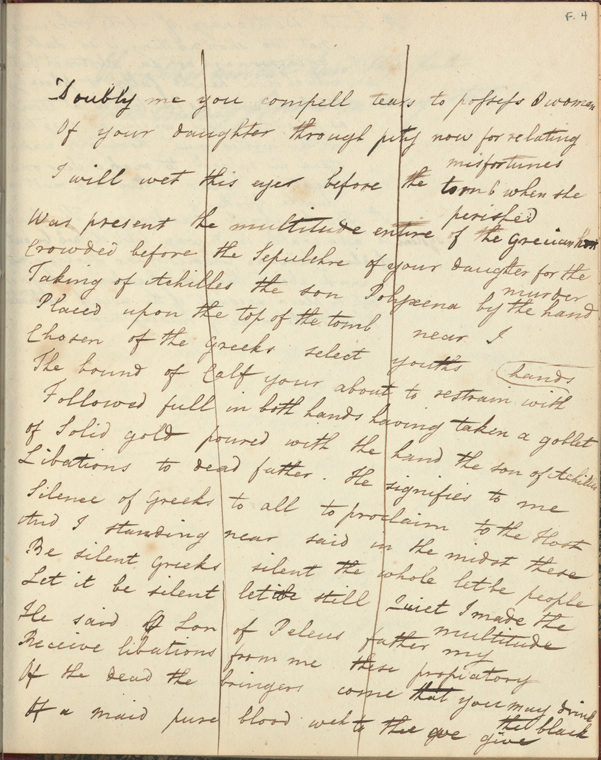 F. 4
Doubly me you compell tears to possess O woman
Of your daughter through pity now for relating
misfortunes
I will wet this eye before the tomb when she
perished
Was present the multitude entire of the Grecian
Crowded before the Sepulchre of your daughter for the
murder
Taking of Achilles the son Polyxena by the hand
Placed upon the top of the tomb near I
Chosen of the Greeks select youths
hands
The bound of Calf your about to restrain with
Followed full in both hands having taken a goblet
of Solid gold poured with the hand the son of Achilles
Libations to dead father. He signifies to me
Silence of Greeks to all to proclaim to the Host
And I standing near said in the midst these
Be silent Greeks silent the whole let be people
Let it be silent still Quiet I made the
multitude
He said O Son of Peleus father my
Receive libations from me these propiatory
Of the dead the bringers come that you may drink
the black
Of a maid pure blood which to thee we give